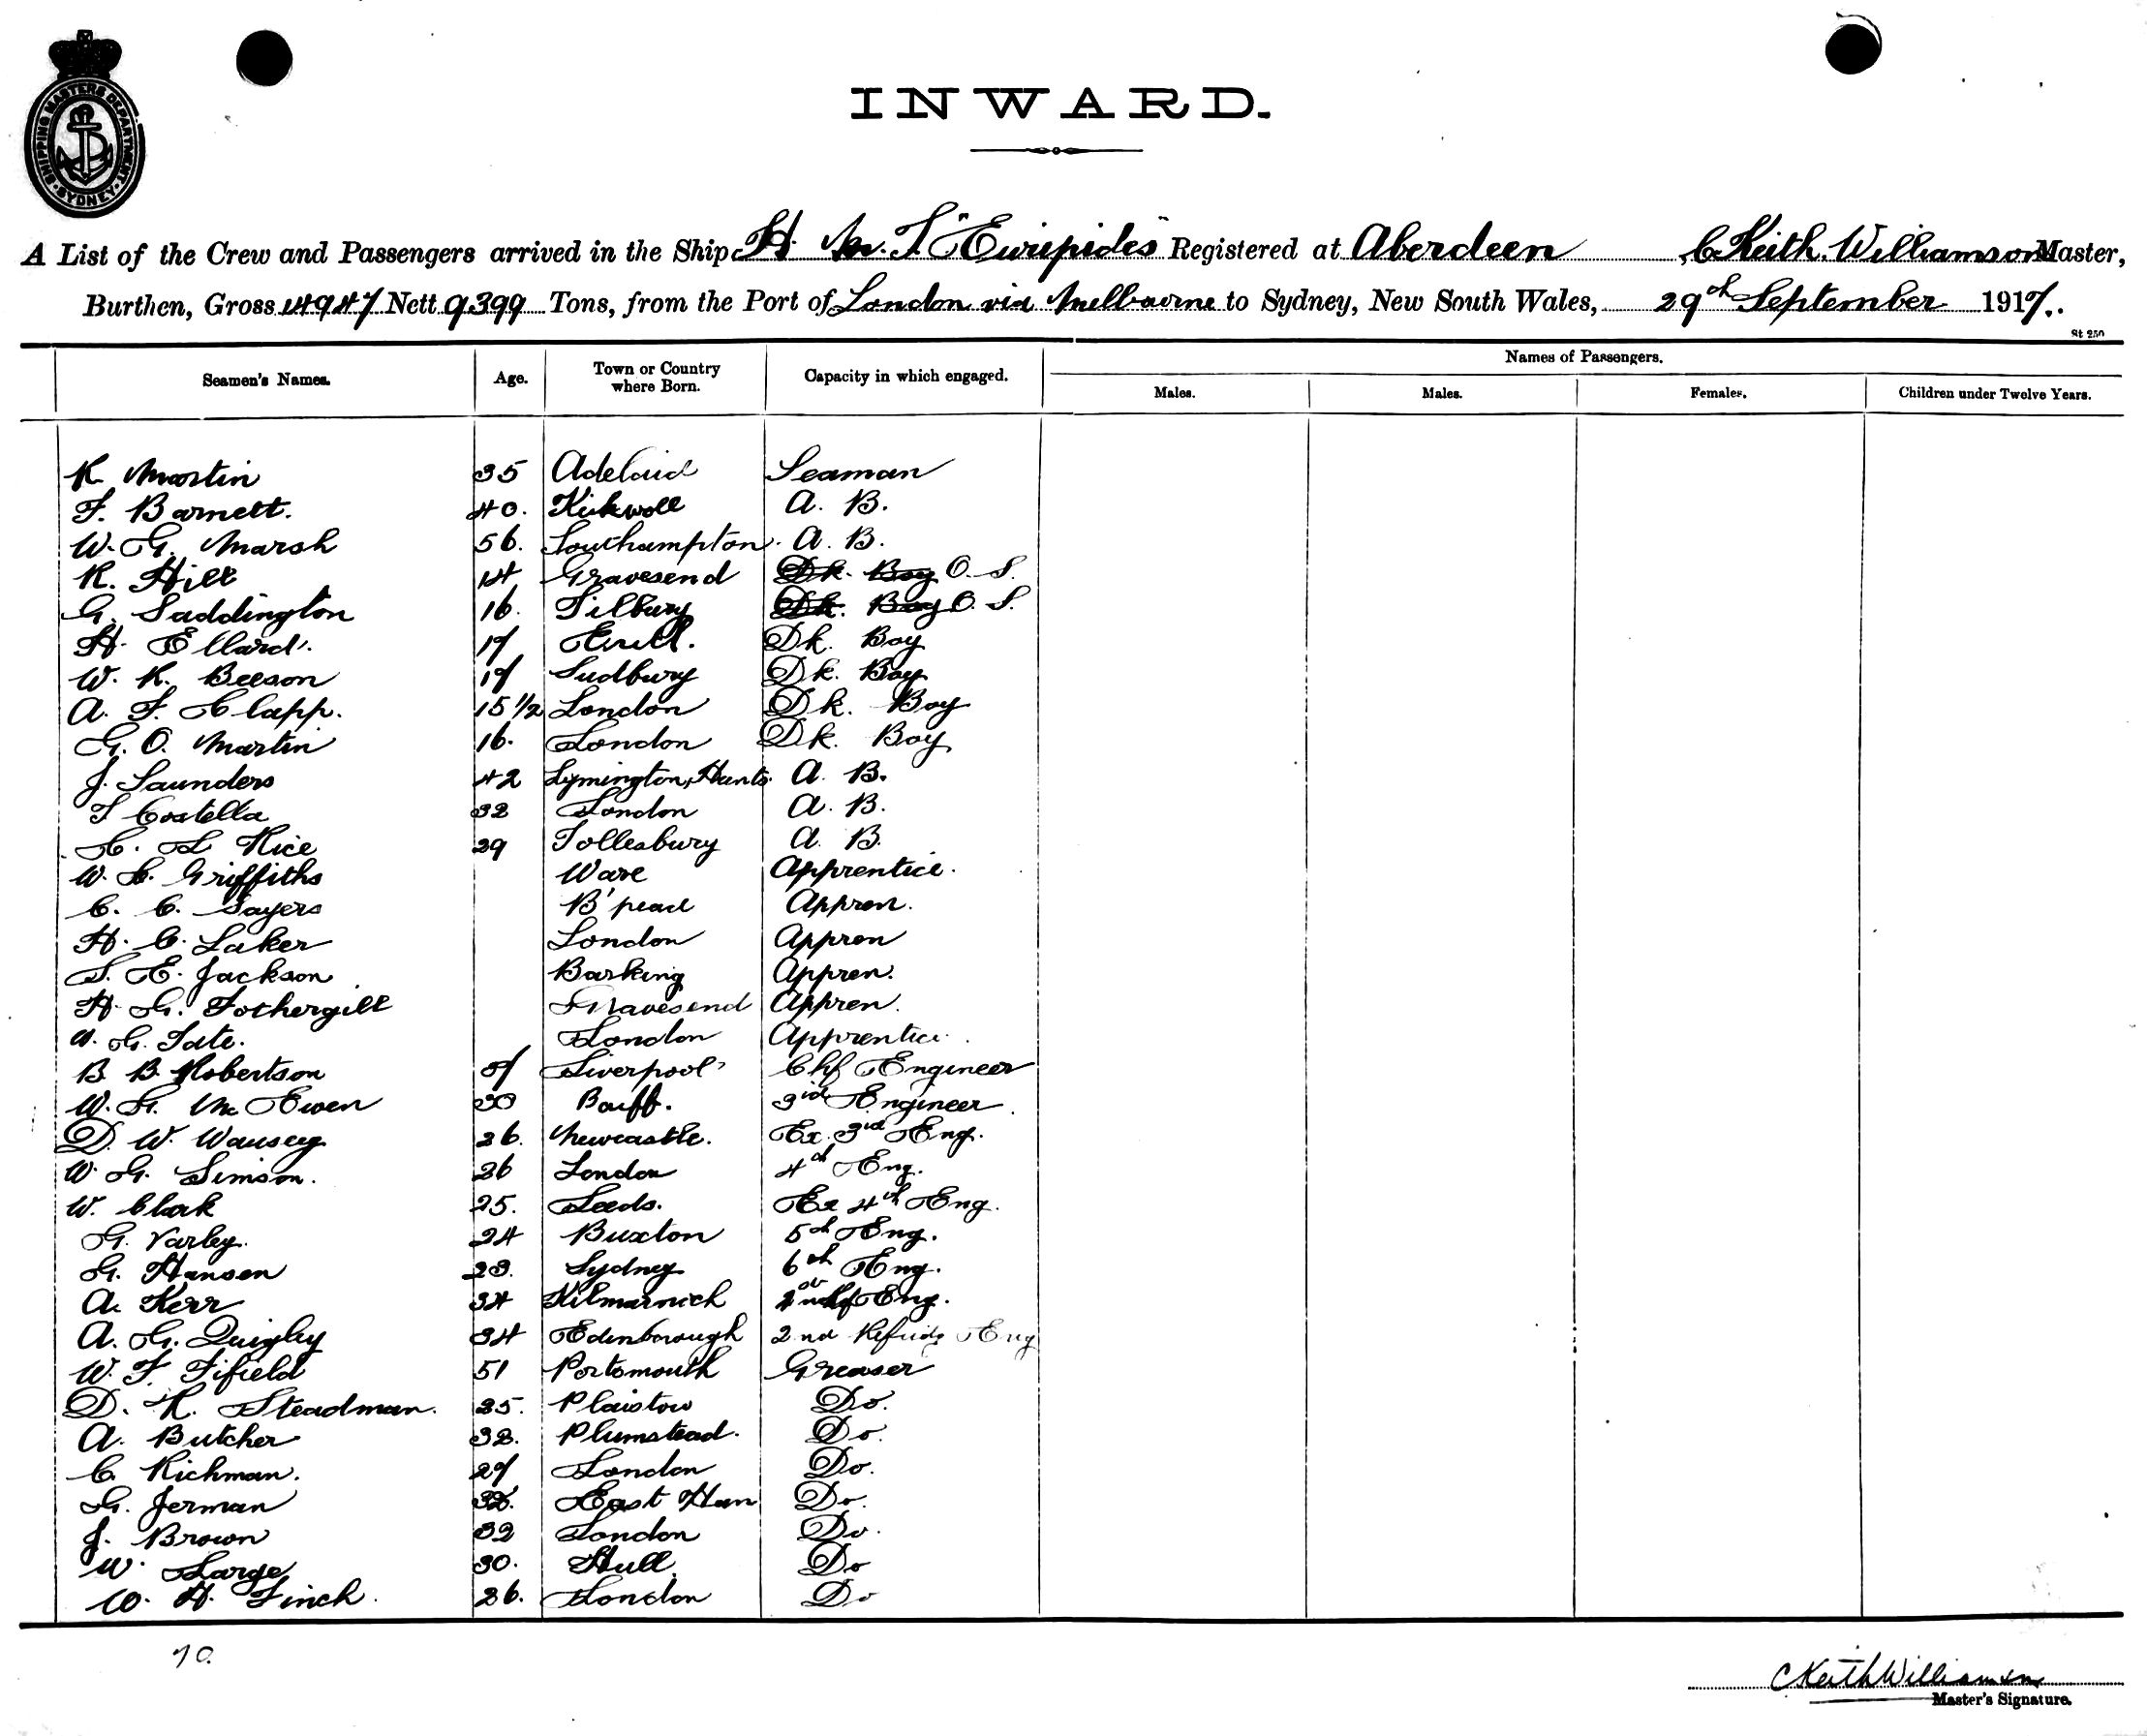 SHIPPING MASTERS DEPARTMENT · SYDNEY ·
INWARD.
A List of the Crew and Passengers arrived in the Ship H. M. T "Euripides" Registered at Aberdeen C Keith Williamson Master,
Burthen, Gross 14947 Nett 9399 Tons, from the Port of London via Melbourne to Sydney, New South Wales, 29th September 1917.
St 250
Names of Passengers.
Seamen's Names. Age. Town or Country where Born. Capacity in which engaged. Males. Males. Females. Children under Twelve Years.
R Martin 35 Adelaid Seaman
F. Barnett. 40. Kirkwall A. B.
W. G. Marsh 56. Southampton. A. B.
R. Hill 14 Gravesend Dk. Boy O. S.
G. Saddington 16. Tilbury Dk. Boy O. S.
H. Ellard. 17 Dk. Boy
W. R. Beeson 17 Sudbury Dk. Boy
A. F. Clapp. 15 1/2 London Dk. Boy
G. O. Martin 16. London Dk. Boy
J. Saunders 42 Lymington, Hants. A. B.
T Costella 32 London A. B.
C. L Rice 29 Tollesbury A. B.
W. C. Griffiths Ware Apprentice.
C. C. Sayers Appren.
H. C. Laker London Appren
S. E. Jackson Barking Appren.
H. G. Fothergill Gravesend Appren.
A. G. Tate. London Apprentice.
B. B. Robertson Liverpool Chf Engineer
W. G. Mc Ewen 30 Banff. 3rd Engineer
D. W. Wausey 26. Newcastle. Ex. 3rd Eng.
W. G. Simson. 26 London 4th Eng.
W. Clark 25. Leeds. Ex 4th Eng.
G. Varley. 24 Buxton 5th Eng.
G. Hansen 23. Sydney 6th Eng.
A. Kerr 34 Kilmarnick Eng.
A. G. Quigley 34 Edenborough 2nd Refridg Eng
W. F. Fifield 51 Portsmouth Greaser
D. R. Steadman. 25. Plaistow Do.
A. Butcher 32. Plumstead. Do.
C. Richman. 27 London Do.
G. Jerman 32. East Ham Do.
J. Brown 32 London Do.
W. Large 30. Hull. Do
W. H. Finch. 26. London Do
70.
C Keith Williamson
Master's Signature.